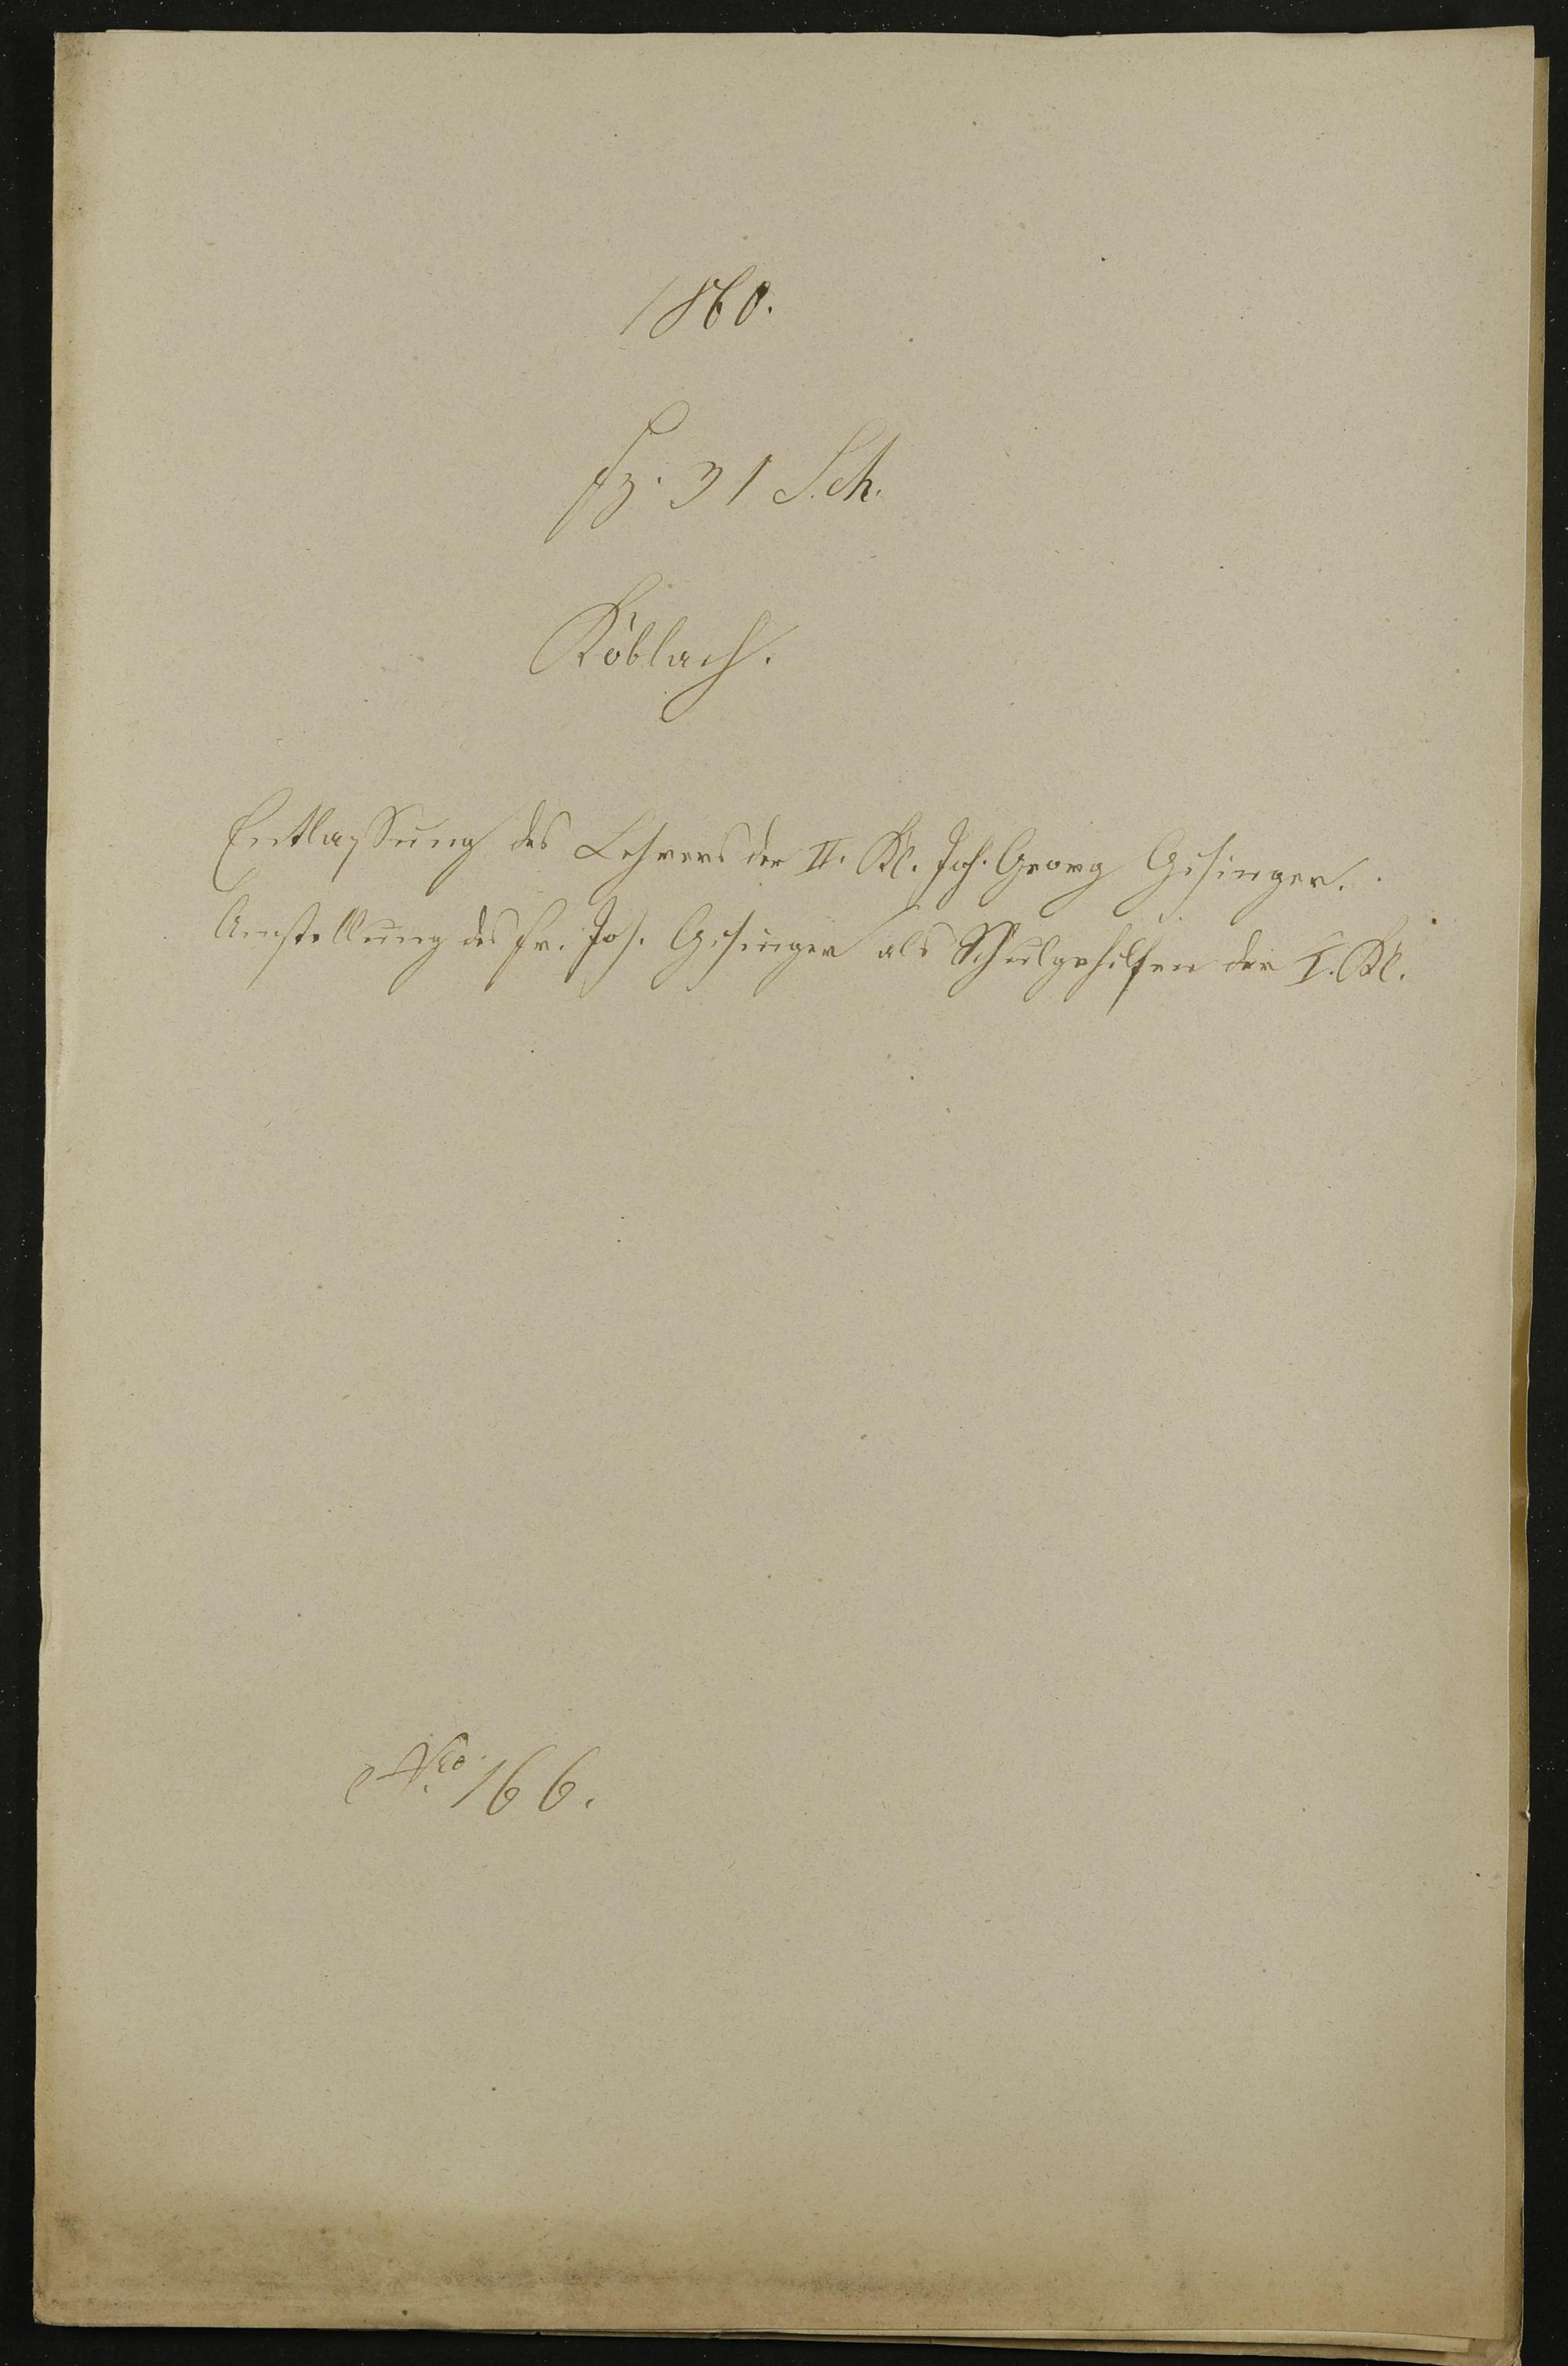 1860.
Fz. 31 Sch.
Koblach.
Entlassung des Lehrers der II. Kl. Joh. Georg Gisinger.
Anstellung des Fr. Jos. Gisinger als Schulgehilfen der I. Kl.
Nro. 166.